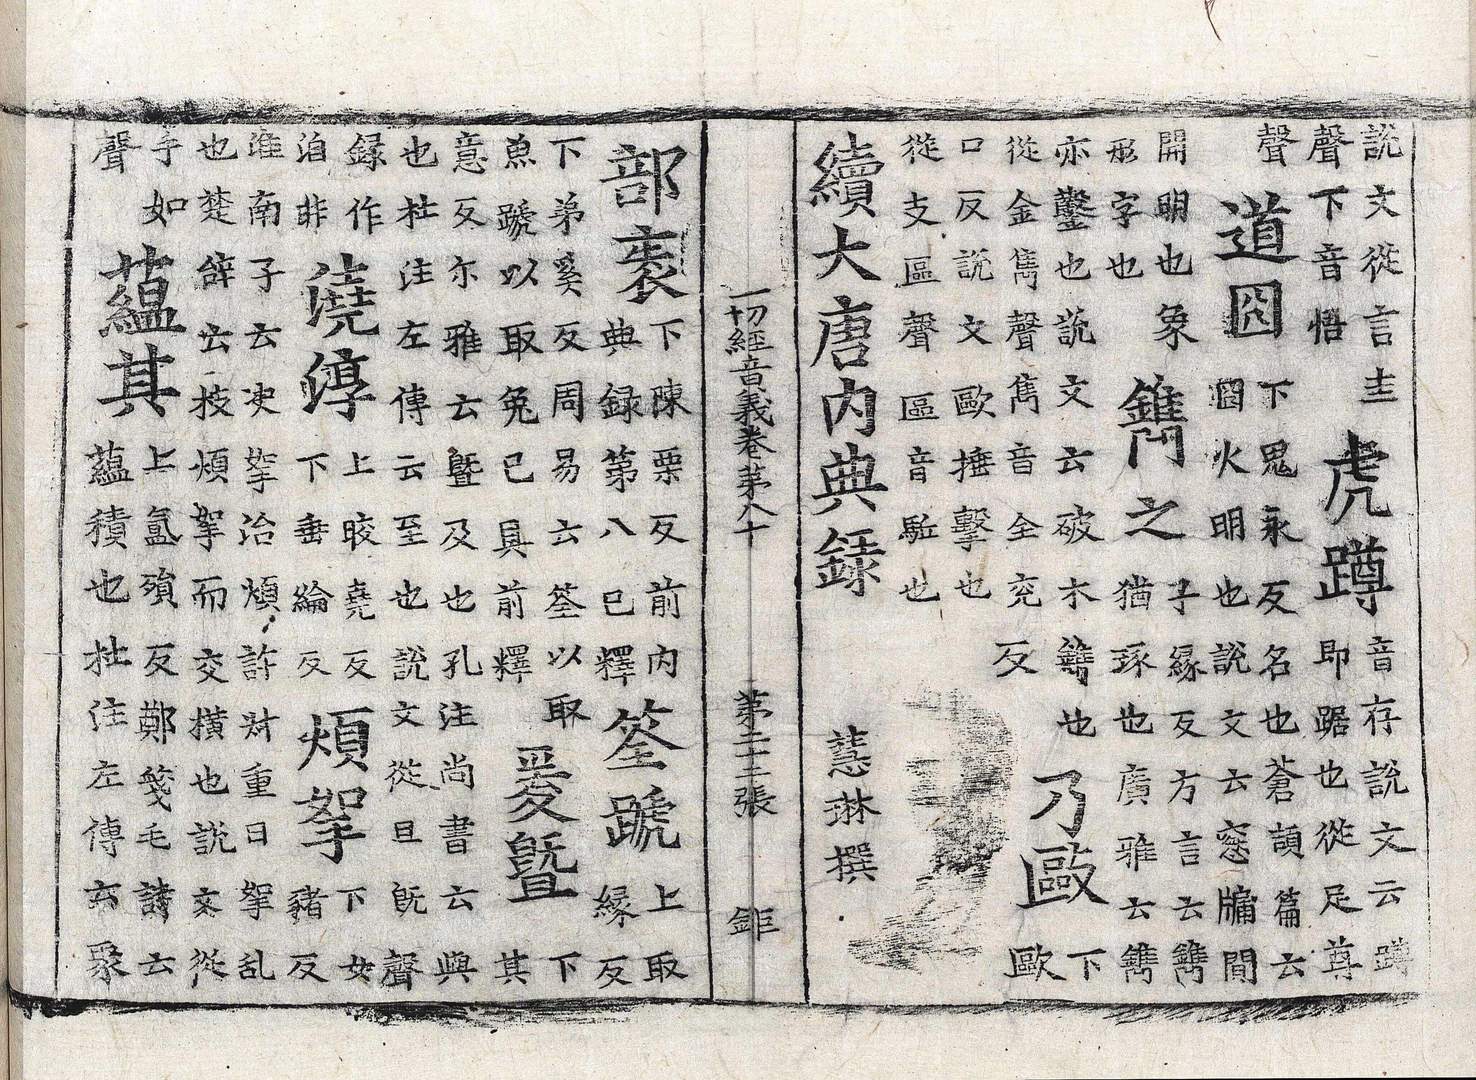 説文從言圭
聲下音悟
虎蹲
音存説文云蹲
即踞也從足尊
聲
道囧
下鬼永反名也蒼頡篇云
囧火明也説文云窓牖間
開明也象
形字也
鐫之
子緣反方言云鐫
猶琢也廣雅云鐫
亦鑿也説文云破木鐫也
從金雋聲雋音全兖反
乃歐
下
歐
口反説文歐捶擊也
從支區聲區音駈也
續大唐内典録 慧琳撰
一切經音義卷第八十 第二十三張 鉅
部袠
下陳栗反前内
典録第八已釋
筌蹏
上取
緣反
下弟奚反周易云筌以取
魚蹏以取兔已具前釋
爰曁
下
其
意反尒雅云曁及也孔注尚書云與
也杜注左傳云至也説文從旦旣聲
録作
洎非
澆淳
上晈堯反
下垂綸反
煩挐
下女
豬反
淮南子云浹挐治煩許叔重曰挐乱
也楚辭云枝煩挐而交横也説文從
手如
聲
蘊其
上氲殞反鄭箋毛詩云
蘊積也杜注左傳云聚